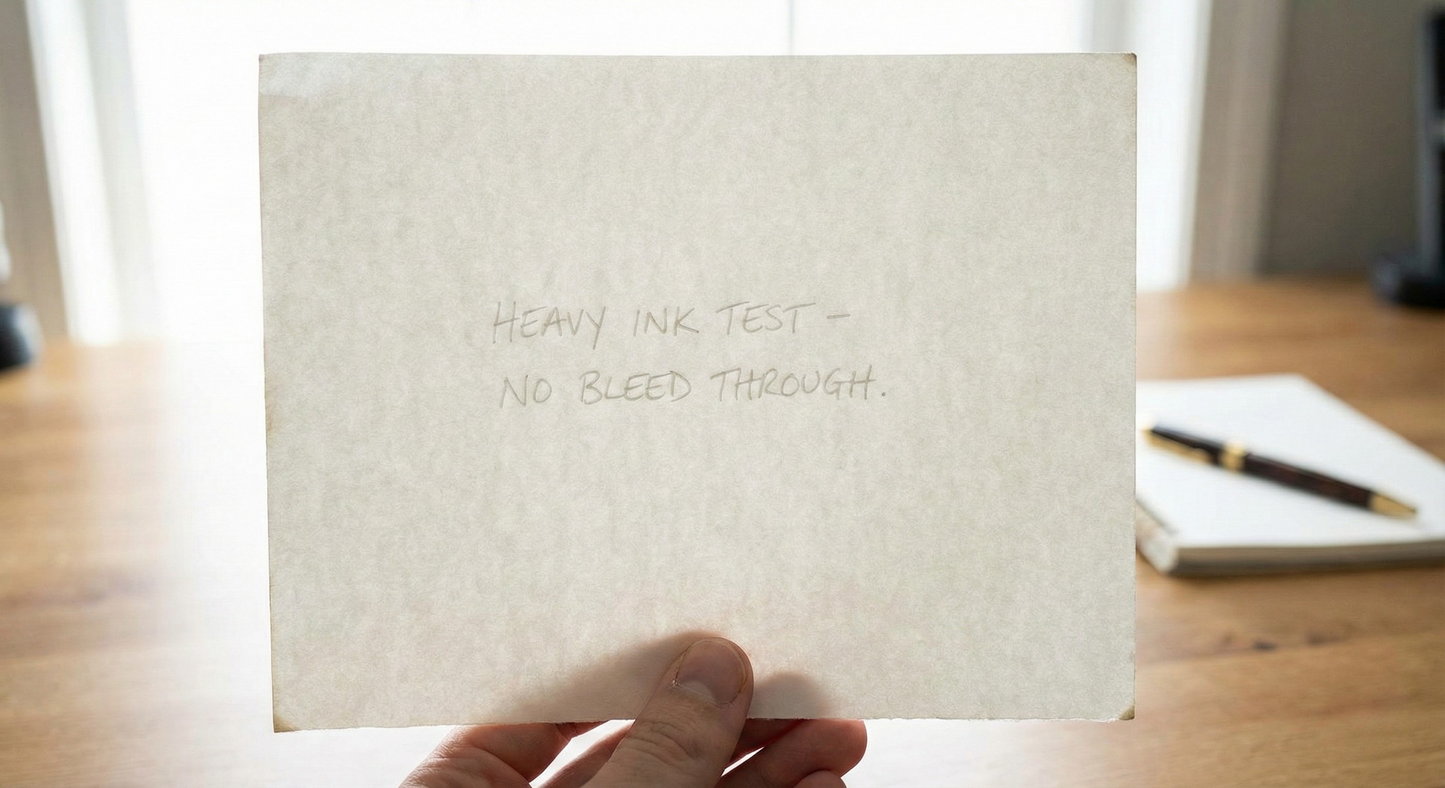 HEAVY INK TEST –
NO BLEED THROUGH.